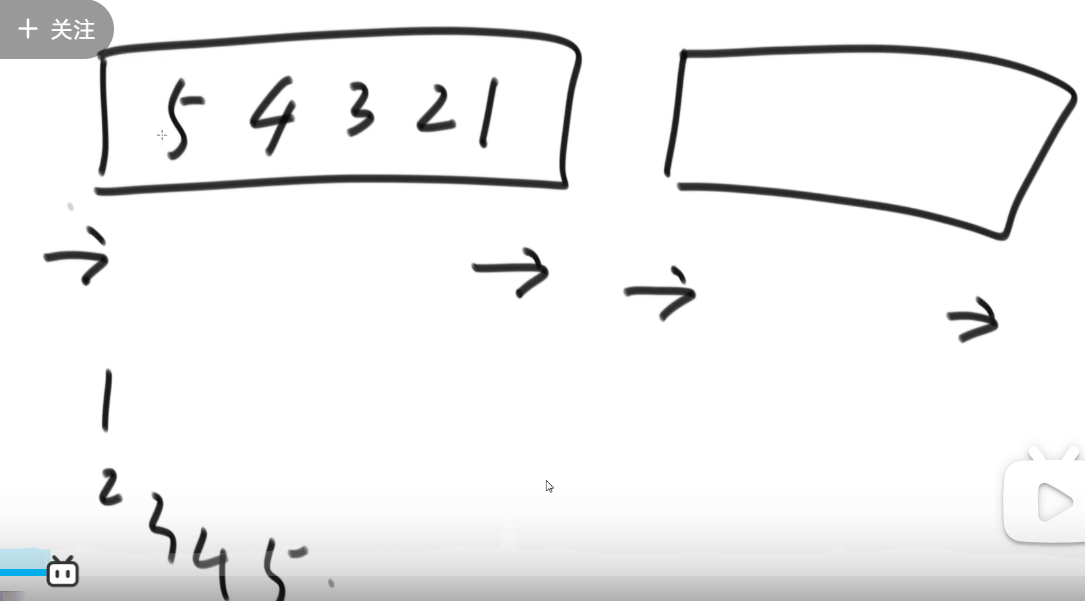 + 关注
5 4 3 2 1
1
2 3 4 5